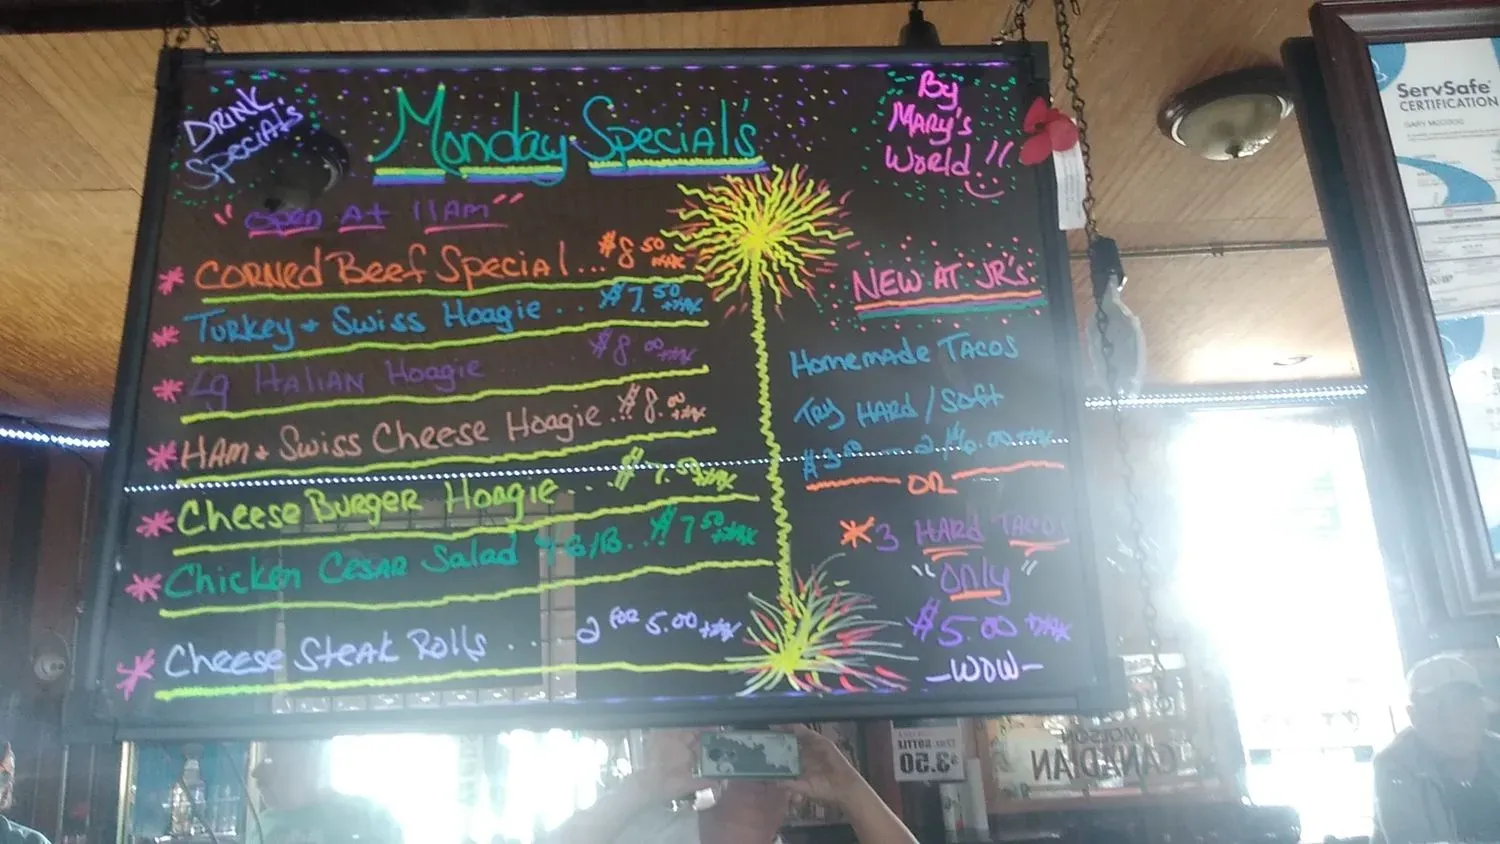 DRINK
Specials
Monday Special's
By
MARY's
World!!
"open At 11AM"
* CORNed Beef Special...$8.50 +tax
* Turkey + Swiss Hoagie...$7.50 +tax
* Lg ITALIAN Hoagie ... $8.00 +tax
* HAM + Swiss Cheese Hoagie..$8.00 +tax
* Cheese Burger Hoagie...$7.50 +tax
* Chicken Cesar Salad ...$7.50 +tax
* Cheese Steak Rolls ... 2 FOR 5.00 +tax
NEW AT JR's.
Homemade TACOS
Try HARD / Soft
$3.00
OR
* 3 HARD TACO
"Only"
$5.00 +tax
-WOW-
ServSafe
CERTIFICATION
BOTTLE
$3.50
MOLSON
CANADIAN